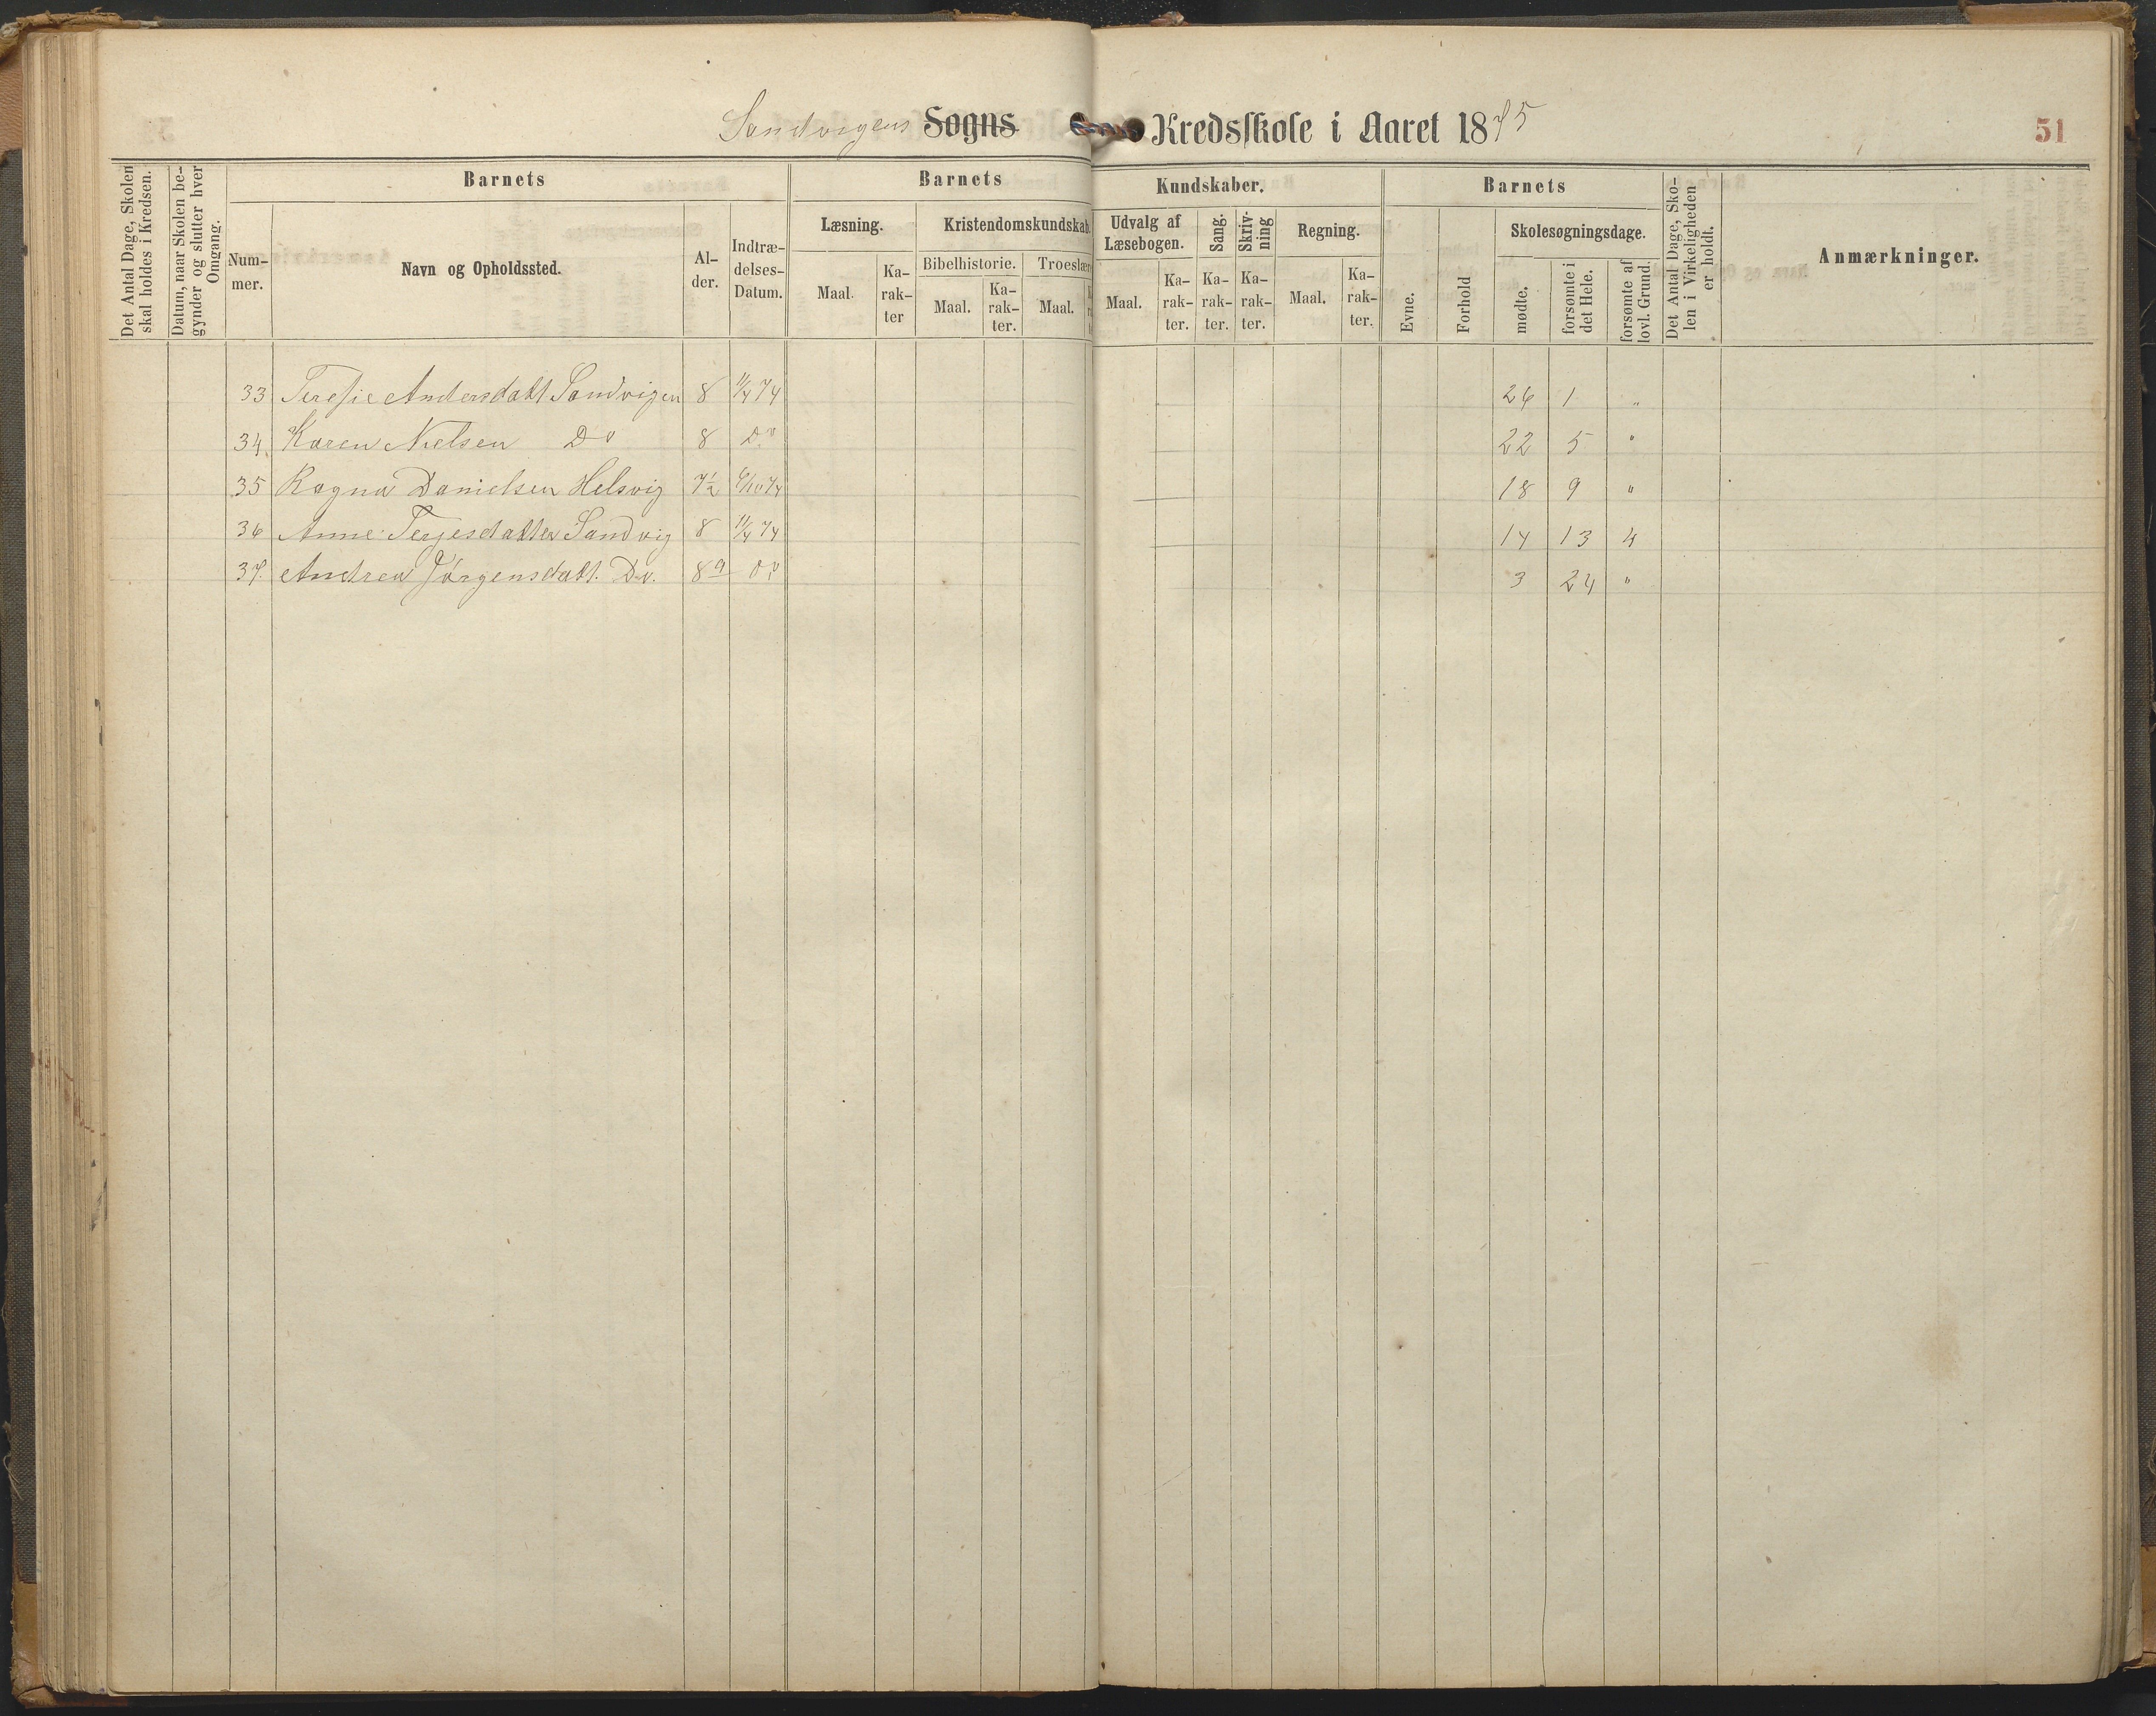 Sandvigens Sogns Kredsskole i Aaret 1875
51
Det Antal Dage, Skolen skal holdes i Kredsen.
Datum, naar Skolen begynder og slutter hver Omgang.
Barnets
Nummer.
Navn og Opholdssted.
Alder.
Indtrædelses-Datum.
Barnets
Læsning.
Maal.
Karakter
Kristendomskundskab.
Bibelhistorie.
Maal.
Karakter.
Troeslær
Maal.
Kundskaber.
Udvalg af Læsebogen.
Maal.
Karakter.
Sang.
Karakter.
Skrivning
Karakter.
Regning.
Maal.
Karakter.
Barnets
Evne.
Forhold
Skolesøgningsdage.
mødte.
forsømte i det Hele.
forsømte af lovl. Grund.
Det Antal Dage, Skolen i Virkeligheden er holdt.
Anmærkninger.
33 Teresie Andersdatt Sandvigen 8 11/4 74 26 1 "
34. Karen Nielsen Do 8 Do 22 5 "
35 Ragna Danielsen Helsvig 7½ 6/10 74 18 9 "
36 Anne Terjesdatter Sandvig 8 11/4 74 14 13 4
37. Andrea Jørgensdatt. Do. 8 Do 3 24 "